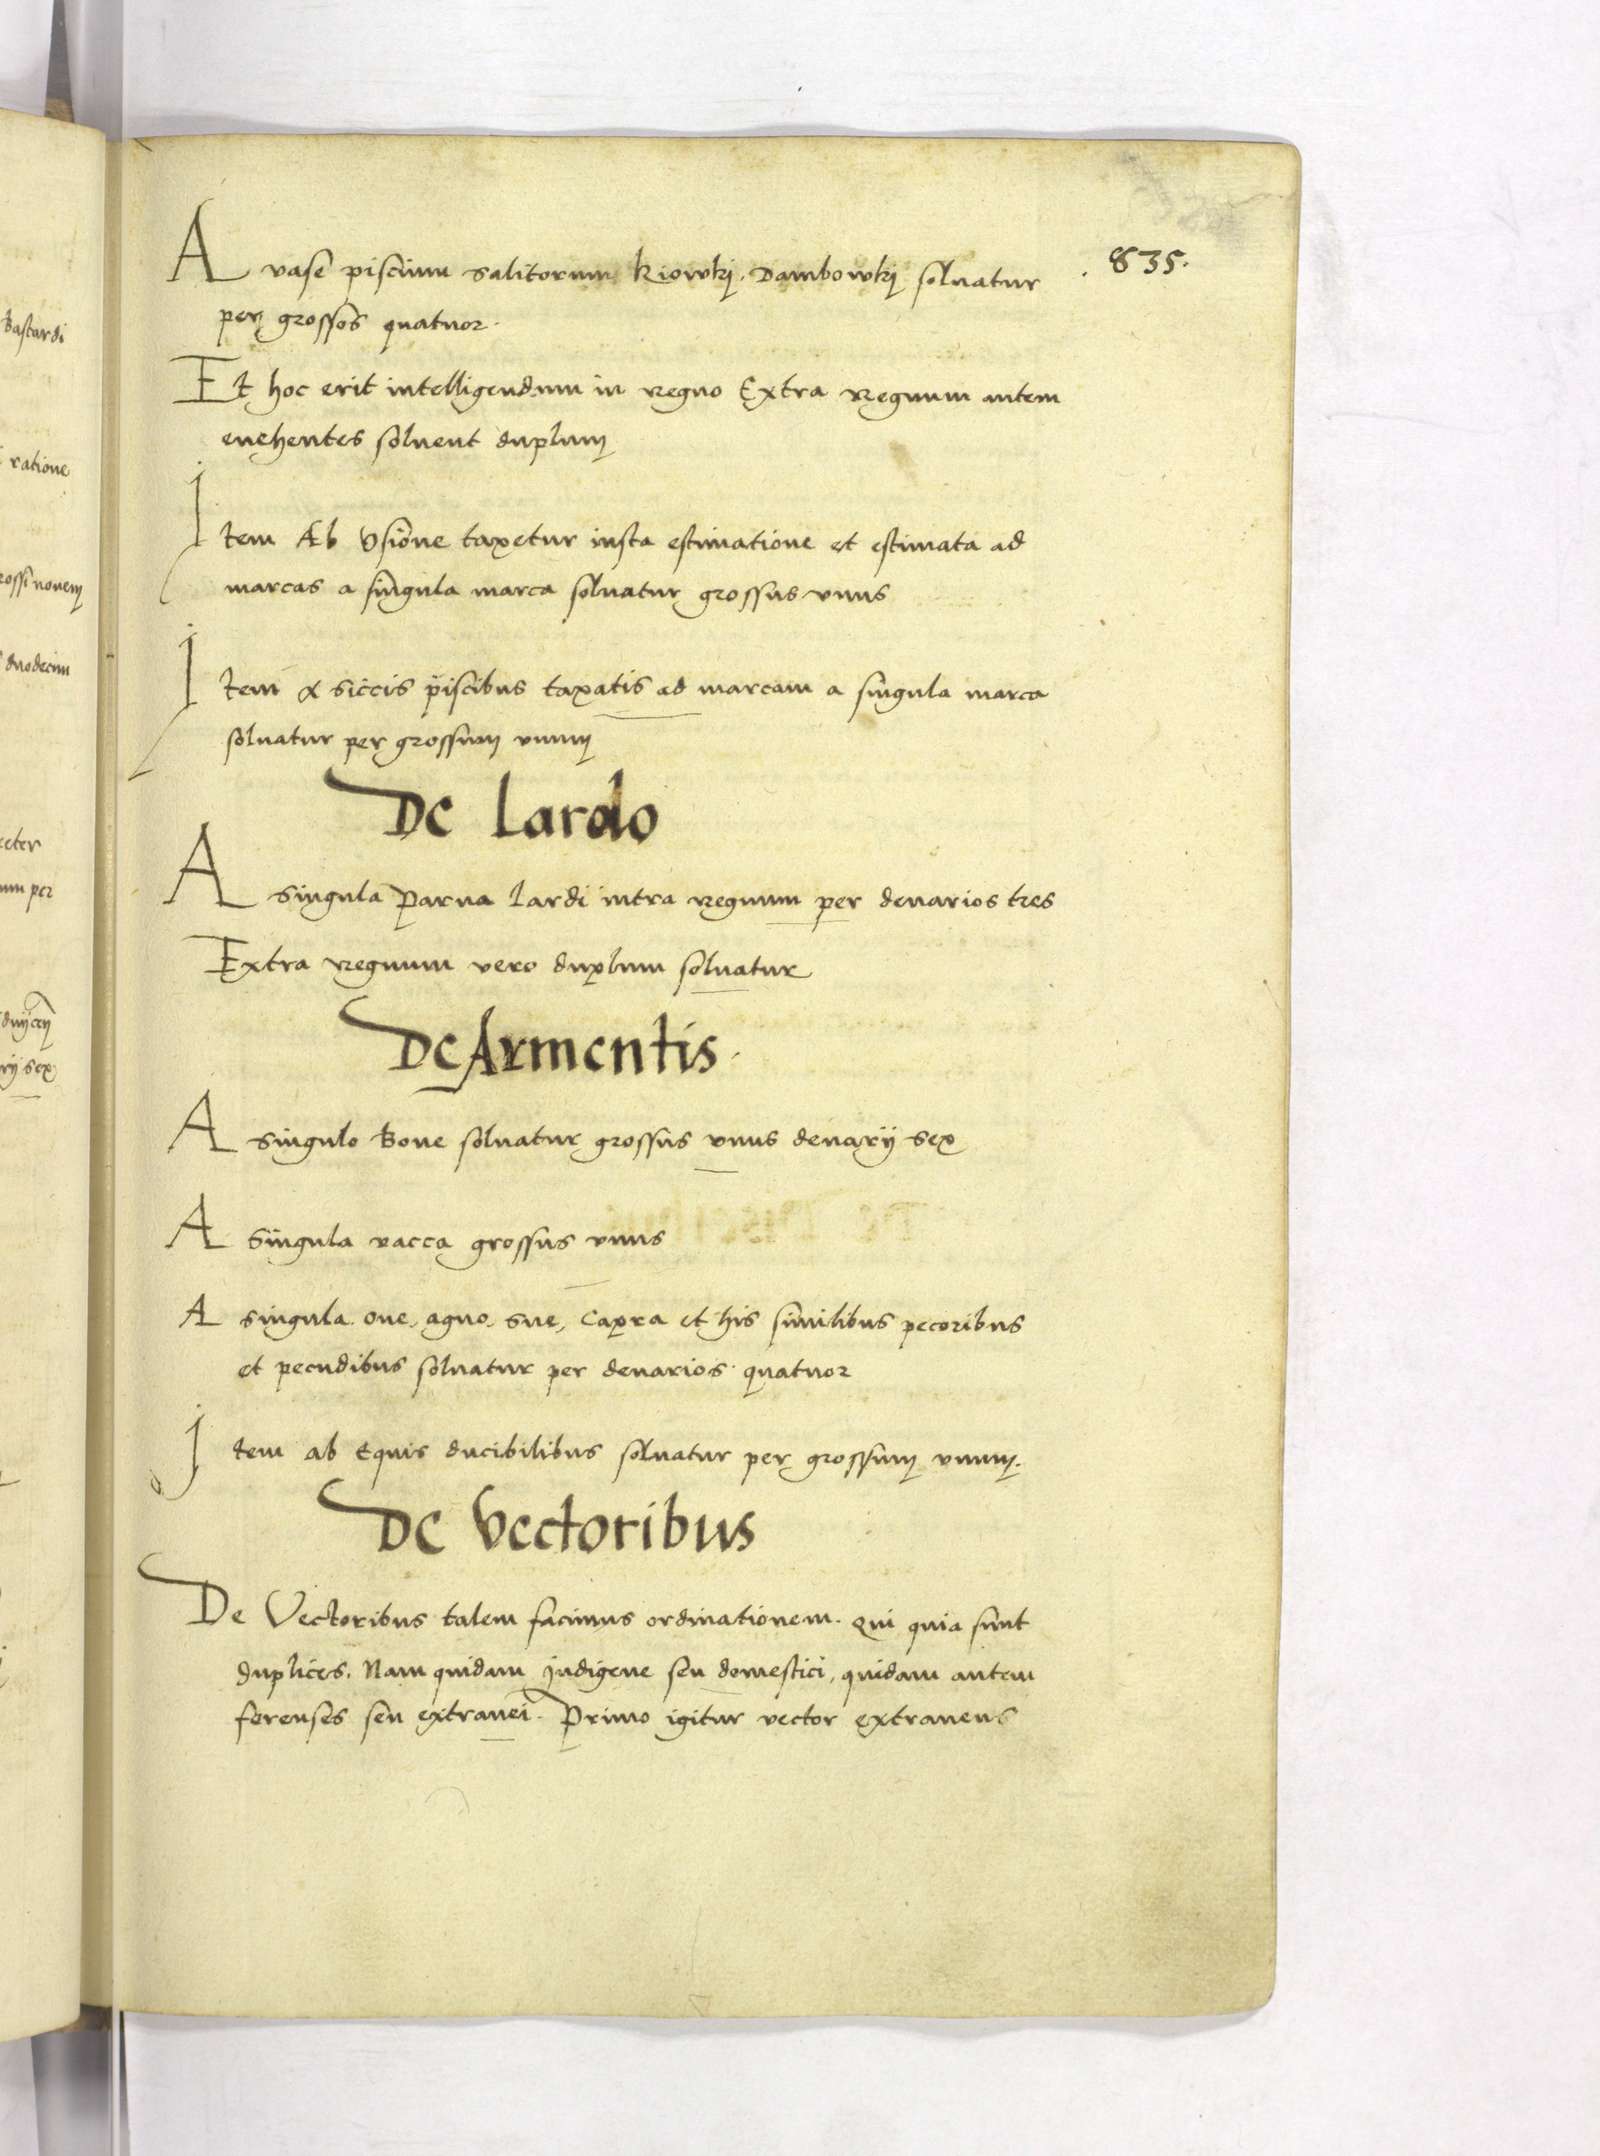 835.
A vase piscium salitorum kiowkj. Dambowkj soluatur
per grossos quatuor.
Et hoc erit intelligendum in regno Extra regnum autem
euehentes soluent duplum
Item Ab Vsione taxetur iusta estimatione et estimata ad
marcas a singula marca soluatur grossus vnus
Item a siccis piscibus taxatis ad marcam a singula marca
soluatur per grossum vnum
De lardo
A singula Parna lardi intra regnum per denarios tres
Extra regnum vero duplum soluatur
De Armentis.
A singulo Boue soluatur grossus vnus denarij sex
A singula vacca grossus vnus
A singula oue, agno, sue, Capra et his similibus pecoribus
et pecudibus soluatur per denarios quatuor
Item ab Equis ducibilibus soluatur per grossum vnum.
De Vectoribus
De Vectoribus talem facimus ordinationem. Qui quia sunt
duplices. Nam quidam indigene seu domestici, quidam autem
forenses seu extranei. Primo igitur vector extraneus
Bastardi
ratione
rossi nouem
duodecim
um per
rij sex